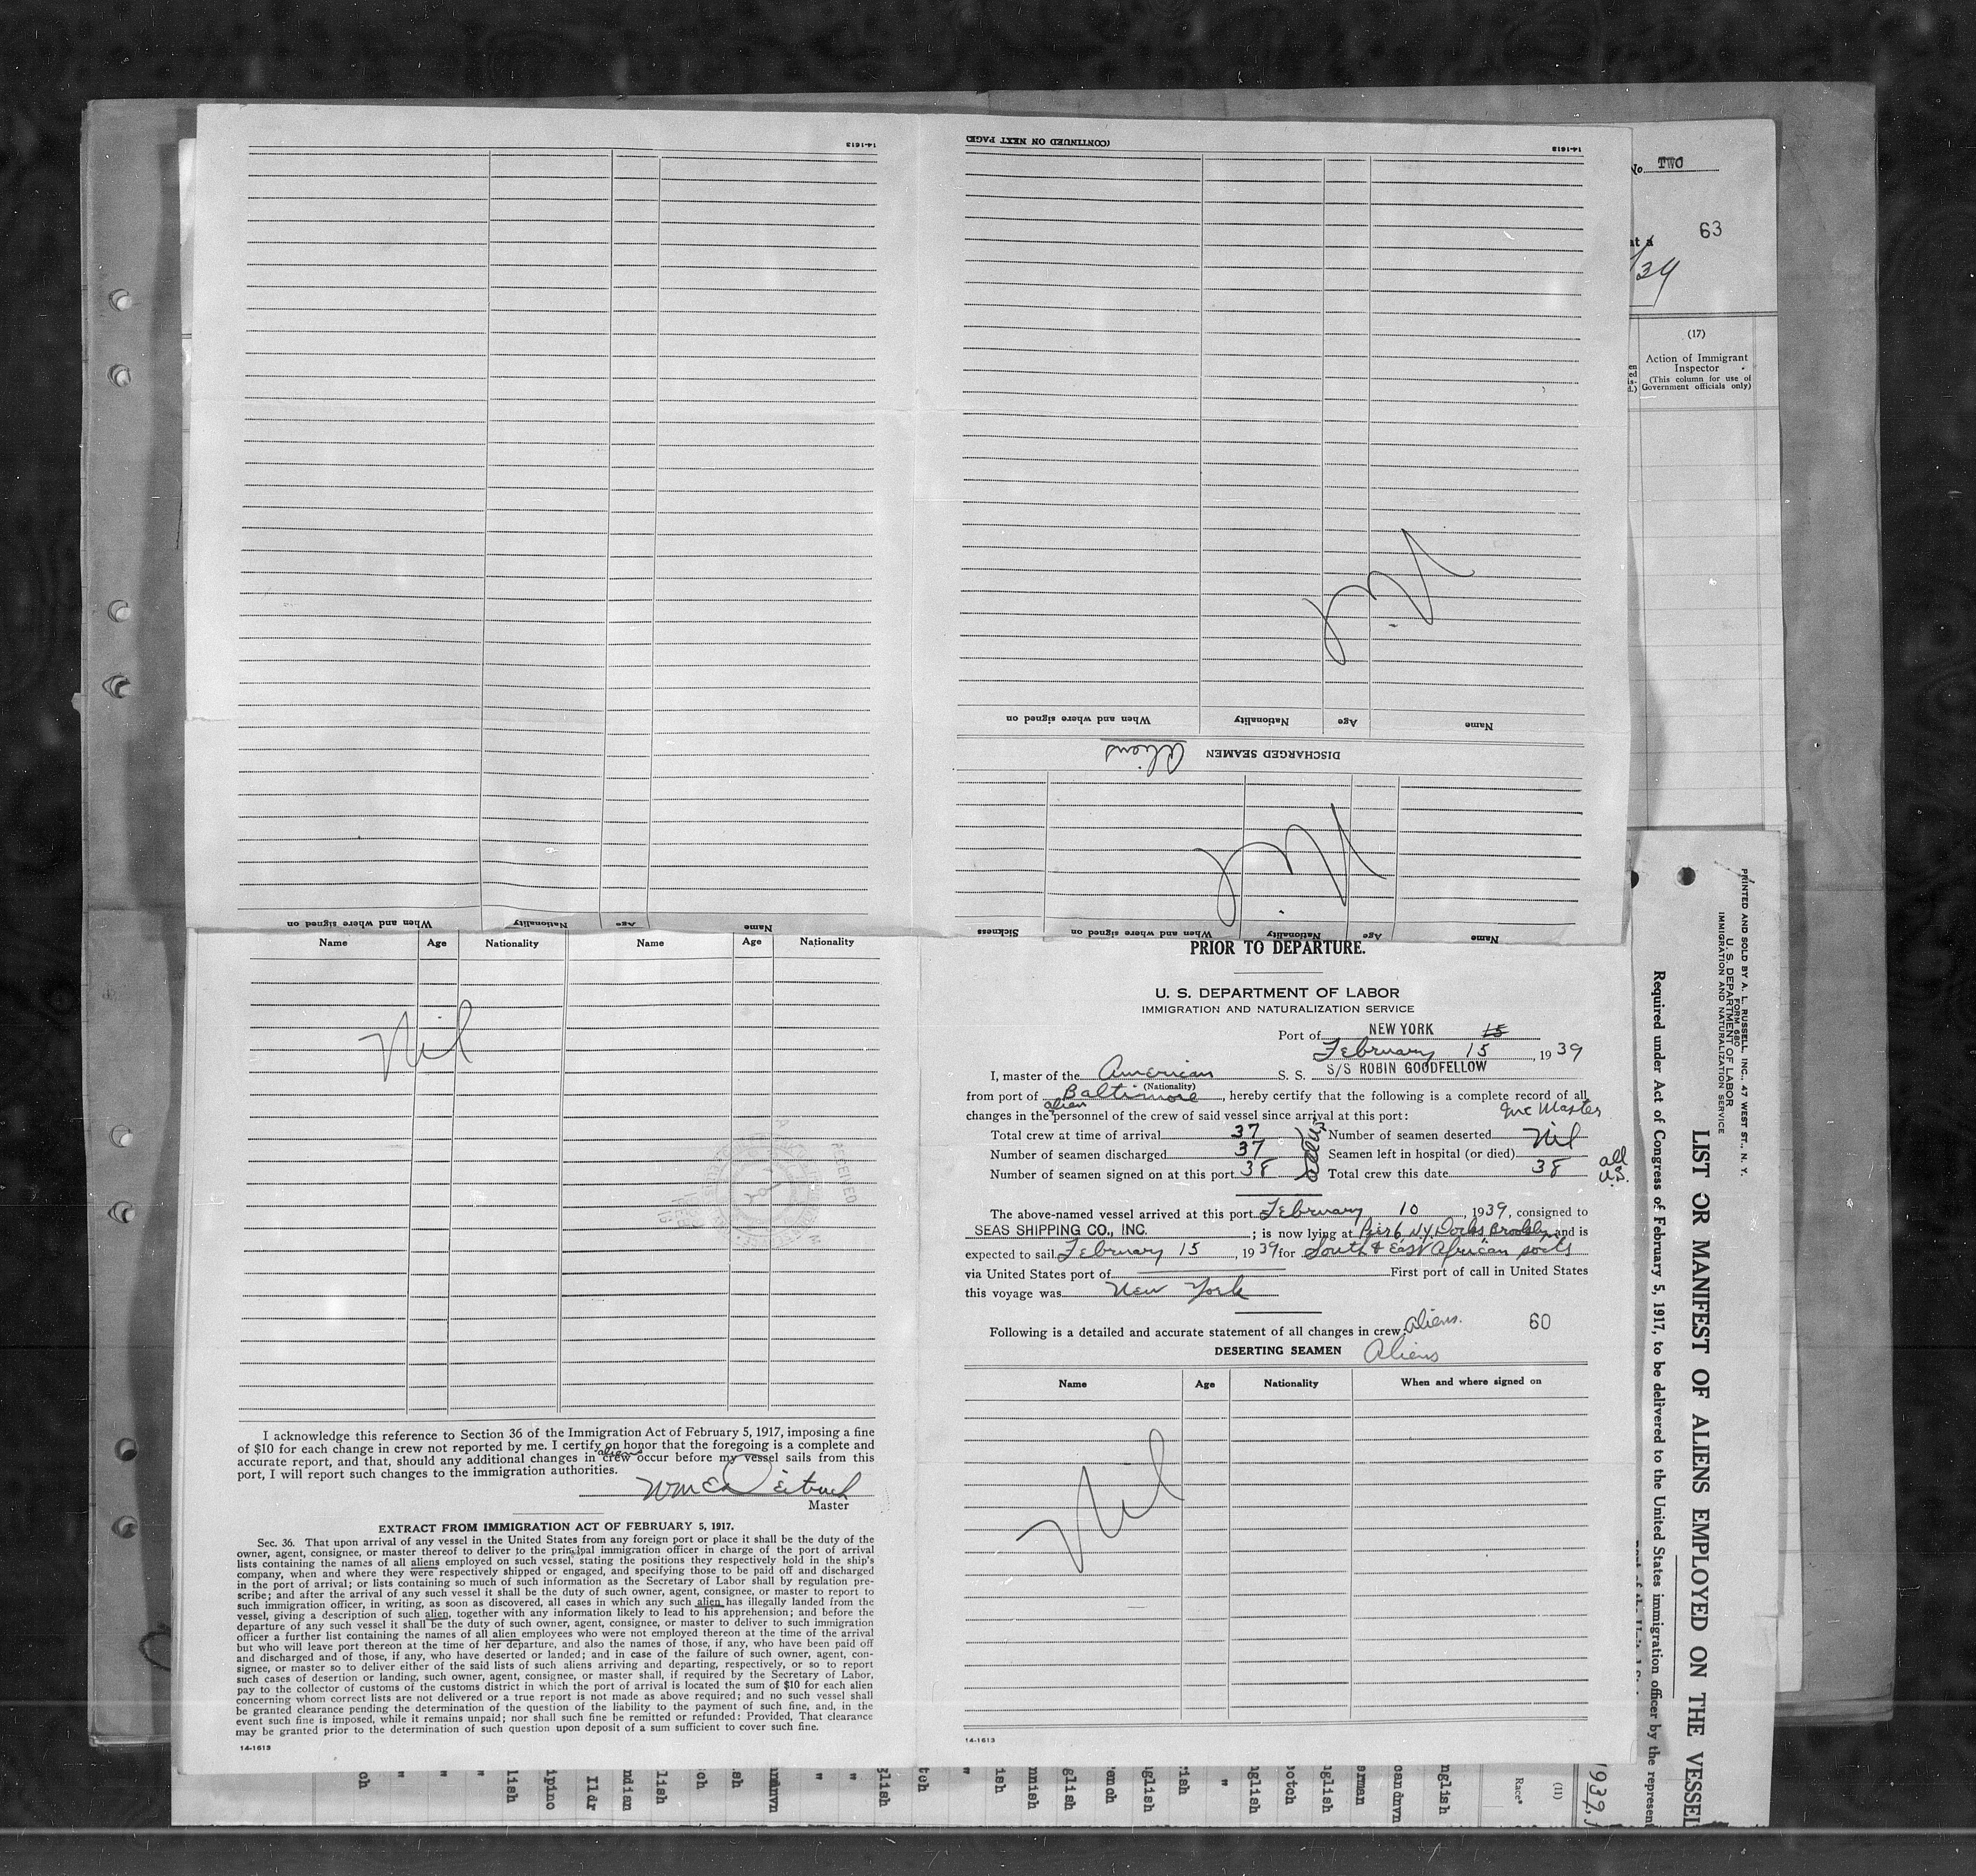 14-1613
(CONTINUED ON NEXT PAGE)
14-1613
No. TWO
63
at a
/39
(17)
Action of Immigrant
Inspector
(This column for use of
Government officials only)
Nil
When and where signed on
Nationality
Age
Name
DISCHARGED SEAMEN Aliens
Nil
When and where signed on
Nationality
Age
Name
Sickness
When and where signed on
Nationality
Age
Name
Name Age Nationality Name Age Nationality
Nil
RECEIVED
I acknowledge this reference to Section 36 of the Immigration Act of February 5, 1917, imposing a fine
of $10 for each change in crew not reported by me. I certify on honor that the foregoing is a complete and
accurate report, and that, should any additional changes in aliens crew occur before my vessel sails from this
port, I will report such changes to the immigration authorities.
Master
EXTRACT FROM IMMIGRATION ACT OF FEBRUARY 5, 1917.
Sec. 36. That upon arrival of any vessel in the United States from any foreign port or place it shall be the duty of the
owner, agent, consignee, or master thereof to deliver to the principal immigration officer in charge of the port of arrival
lists containing the names of all aliens employed on such vessel, stating the positions they respectively hold in the ship's
company, when and where they were respectively shipped or engaged, and specifying those to be paid off and discharged
in the port of arrival; or lists containing so much of such information as the Secretary of Labor shall by regulation pre-
scribe; and after the arrival of any such vessel it shall be the duty of such owner, agent, consignee, or master to report to
such immigration officer, in writing, as soon as discovered, all cases in which any such alien has illegally landed from the
vessel, giving a description of such alien, together with any information likely to lead to his apprehension; and before the
departure of any such vessel it shall be the duty of such owner, agent, consignee, or master to deliver to such immigration
officer a further list containing the names of all alien employees who were not employed thereon at the time of the arrival
but who will leave port thereon at the time of her departure, and also the names of those, if any, who have been paid off
and discharged and of those, if any, who have deserted or landed; and in case of the failure of such owner, agent, con-
signee, or master so to deliver either of the said lists of such aliens arriving and departing, respectively, or so to report
such cases of desertion or landing, such owner, agent, consignee, or master shall, if required by the Secretary of Labor,
pay to the collector of customs of the customs district in which the port of arrival is located the sum of $10 for each alien
concerning whom correct lists are not delivered or a true report is not made as above required; and no such vessel shall
be granted clearance pending the determination of the question of the liability to the payment of such fine, and, in the
event such fine is imposed, while it remains unpaid; nor shall such fine be remitted or refunded: Provided, That clearance
may be granted prior to the determination of such question upon deposit of a sum sufficient to cover such fine.
14-1613
PRIOR TO DEPARTURE.
U. S. DEPARTMENT OF LABOR
IMMIGRATION AND NATURALIZATION SERVICE
Port of NEW YORK 15
February 15, 1939
I, master of the American S. S. S/S ROBIN GOODFELLOW
(Nationality)
from port of Baltimore, hereby certify that the following is a complete record of all
changes in the alien personnel of the crew of said vessel since arrival at this port: Inc Master
Total crew at time of arrival 37 Number of seamen deserted Nil
Number of seamen discharged 37 Seamen left in hospital (or died)
Number of seamen signed on at this port 38 Total crew this date 38
all U.S.
The above-named vessel arrived at this port February 10, 1939, consigned to
SEAS SHIPPING CO., INC.; is now lying at Pier 6 N.Y. Docks Brooklyn and is
expected to sail February 15, 1939 for South & East African ports
via United States port of First port of call in United States
this voyage was New York
Following is a detailed and accurate statement of all changes in crew: aliens. 60
DESERTING SEAMEN Aliens
Name Age Nationality When and where signed on
Nil
14-1613
PRINTED AND SOLD BY A. L. RUSSELL, INC., 47 WEST ST., N. Y.
FORM 680
U. S. DEPARTMENT OF LABOR
IMMIGRATION AND NATURALIZATION SERVICE
LIST OR MANIFEST OF ALIENS EMPLOYED ON THE VESSEL
Required under Act of Congress of February 5, 1917, to be delivered to the United States immigration officer by the represent
1939,
(11)
Race*
nglish
candnvn
erman
nglish
cotch
nglish
"
rish
nglish
ench
glish
nnish
ish
"
tch
glish
"
"
andnvn
sh
ch
lish
ndian
Ildr
ipino
lish
"
"
"
ch